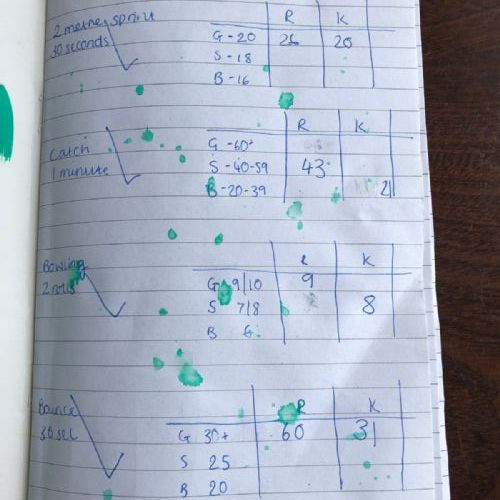 R K
2 metre sprint G - 20 26 20
30 seconds S - 18
B - 16
R K
Catch G - 60+
1 minute S - 40-59 43
B - 20-39 21
R K
Bowling G 9/10 9
2 rolls S 7/8 8
B 6
R K
Bounce G 30+ 60 31
30 sec S 25
B 20